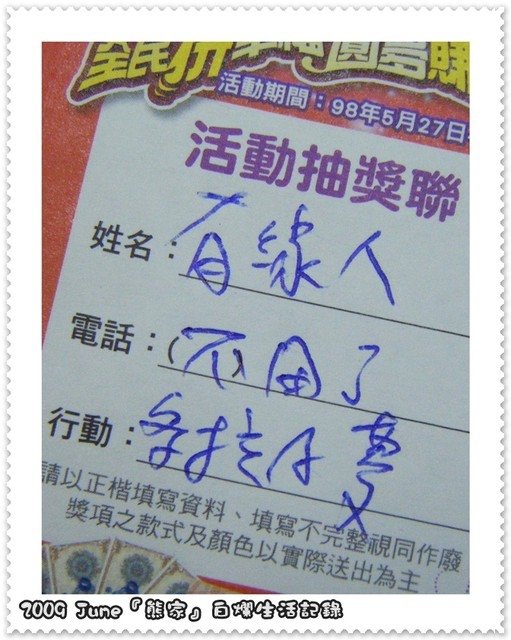 全民拚
活動期間：98年5月27日
活動抽獎聯
姓名：有緣人
電話：(不用)了
行動：
請以正楷填寫資料、填寫不完整視同作廢
獎項之款式及顏色以實際送出為主
2009 June『熊家』白爛生活記錄